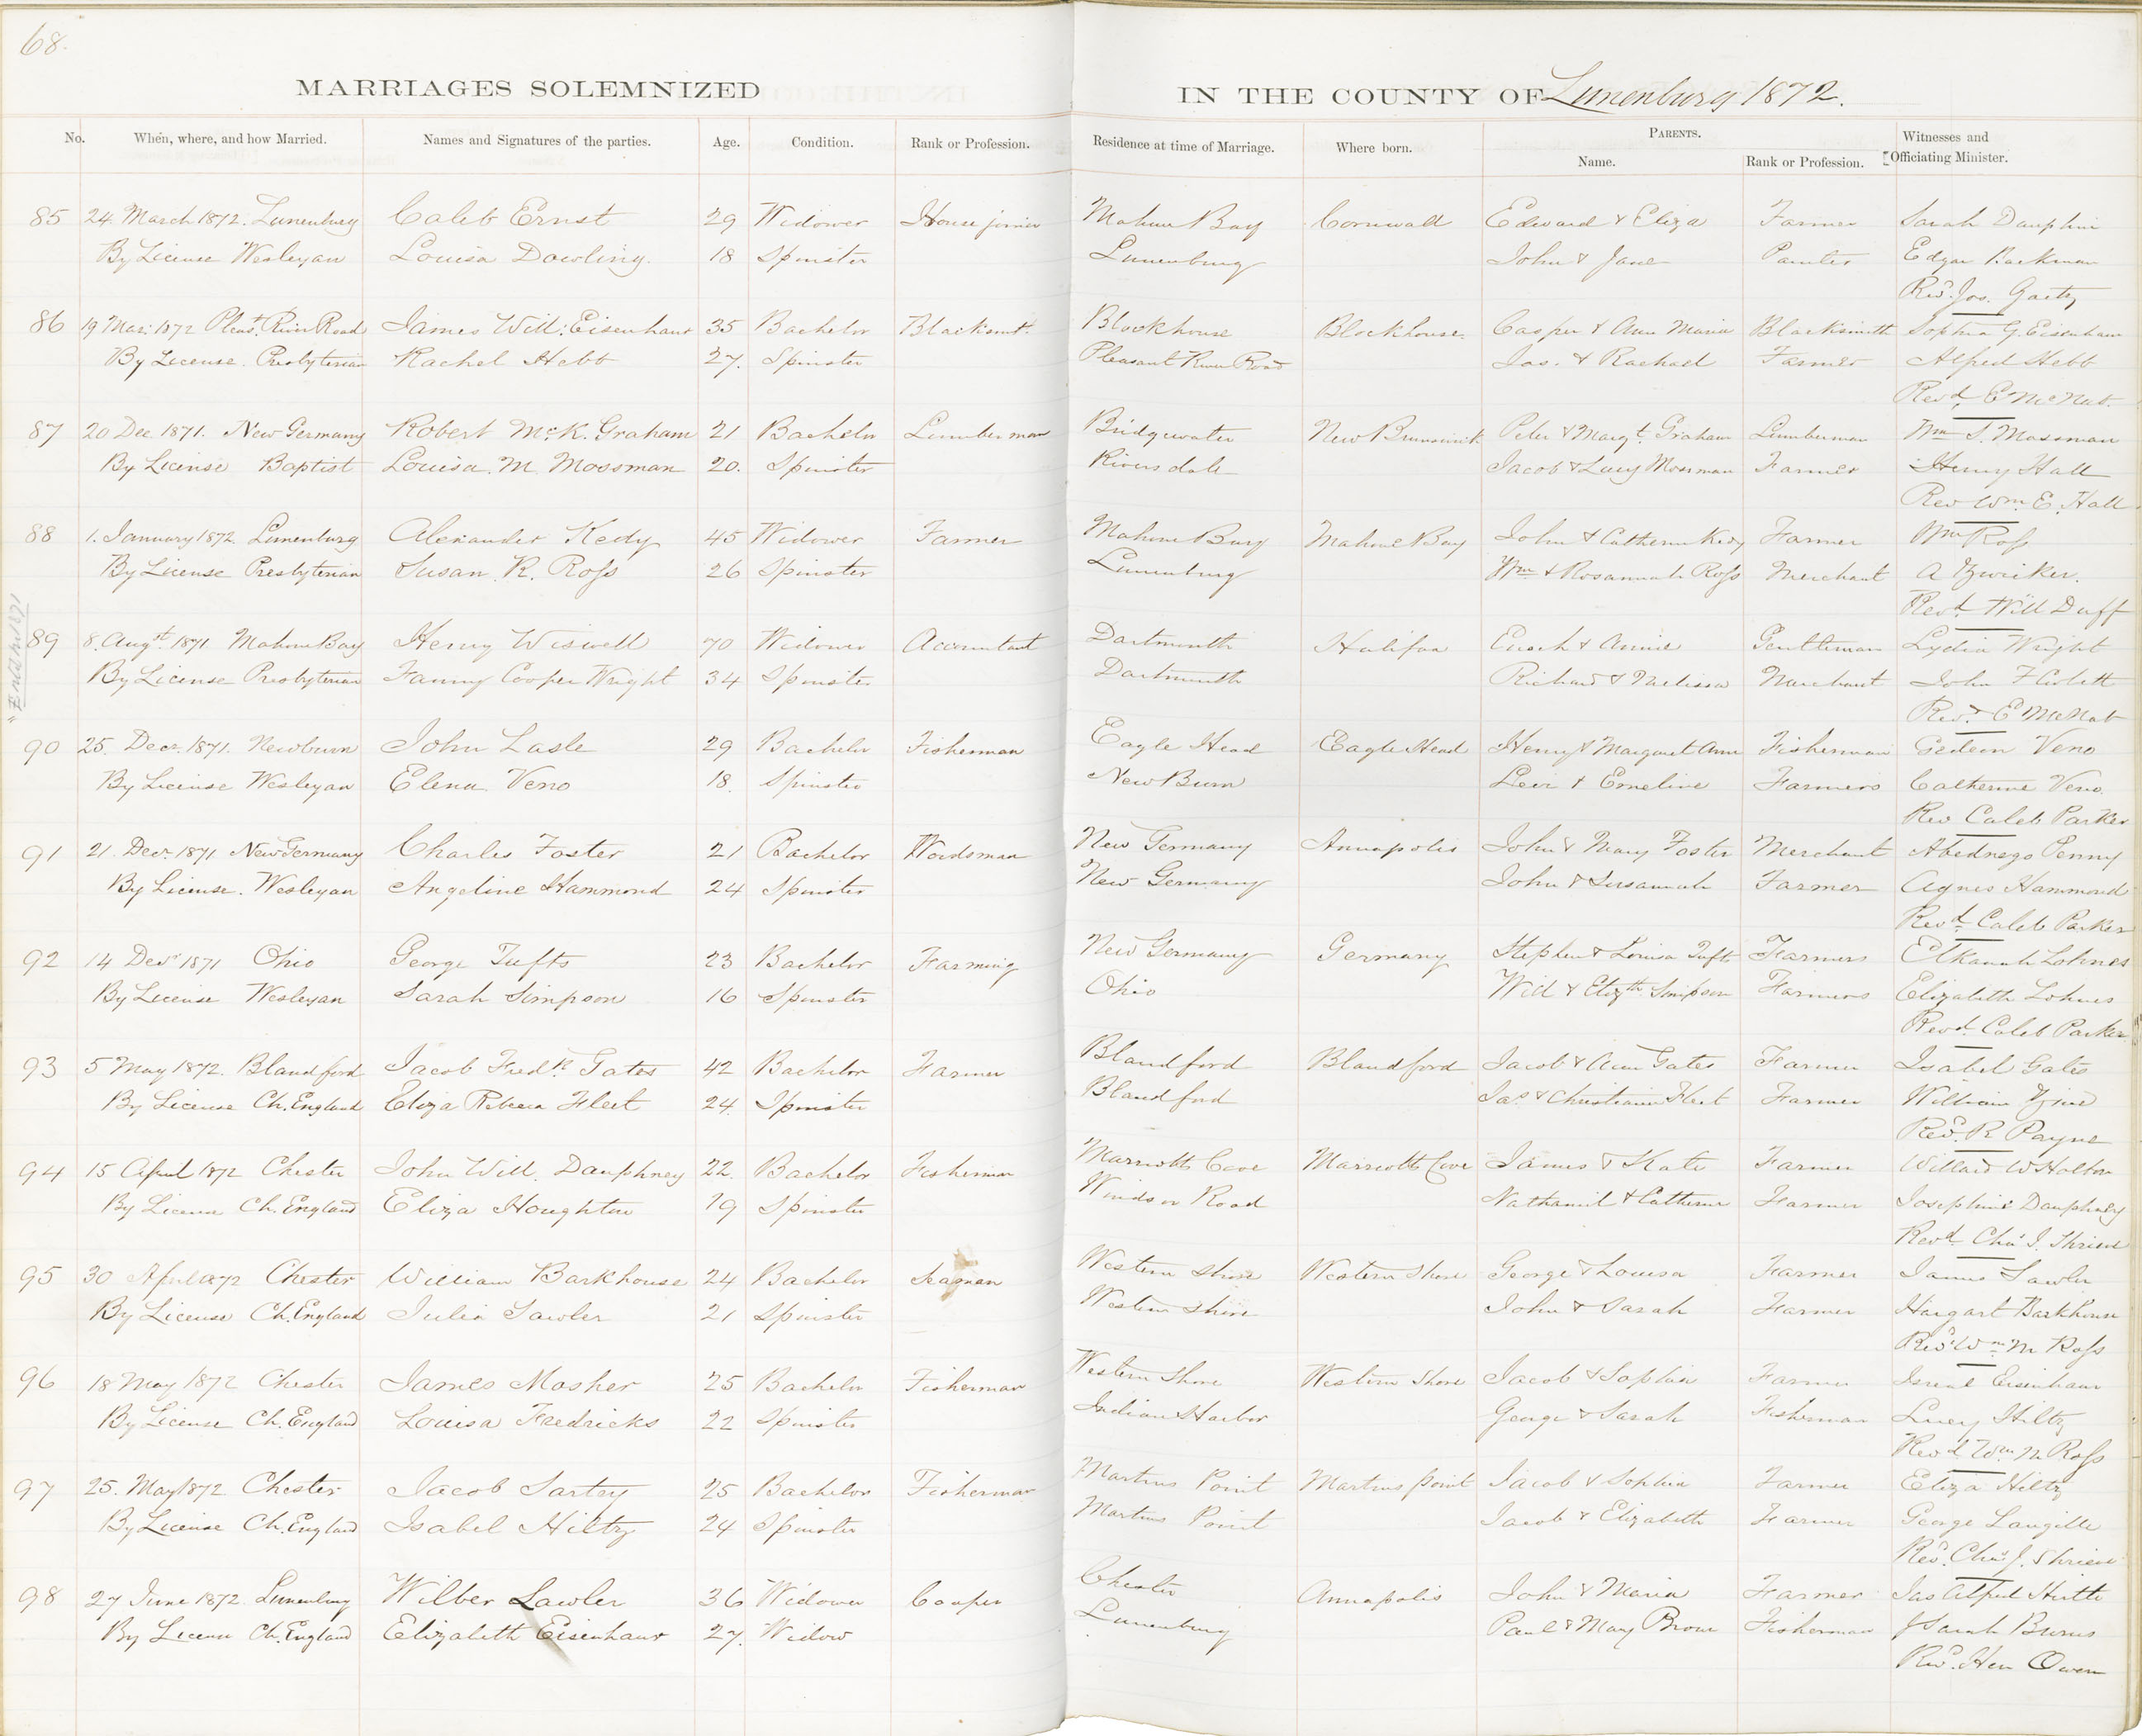 68.
MARRIAGES SOLEMNIZED IN THE COUNTY OF Lunenburg 1872.
No. When, where, and how Married. Names and Signatures of the parties. Age. Condition. Rank or Profession. Residence at time of Marriage. Where born. PARENTS. Name. Rank or Profession. Witnesses and Officiating Minister.
85 24 March 1872. Lunenburg Caleb Ernst 29 Widower House joiner Mahone Bay Cornwall Edward & Eliza Farmer Sarah Dauphin
By License Wesleyan Louisa Dowling. 18 Spinster Lunenburg John & Jane Painter Edgar Backman
Revd. Jos. Gaetz
86 19 Mar: 1872 Pleast. River Road James Will: Eisenhaur 35 Bachelor Blacksmt. Blockhouse Blockhouse. Casper & Ann Maria Blacksmith Sophia G. Eisenhaur
By License. Presbyterian Rachel Hebb 27. Spinster Pleasant River Road Jas. & Rachael Farmer Alfred Hebb
Revd. E McNab.
87 20 Dec 1871. New Germany Robert McK. Graham 21 Bachelor Lumberman Bridgewater New Brunswick Peter & Margt. Graham Lumberman Wm S. Mossman
By License Baptist Louisa. M. Mossman 20. Spinster Riversdale Jacob & Lucy Mossman Farmer Henry Hall
Rev Wm. E. Hall
88 1. January 1872. Lunenburg Alexander Kedy 45 Widower Farmer Mahone Bay Mahone Bay John & Catherine Kedy Farmer Wm Ross
By License Presbyterian Susan. R. Ross 26 Spinster Lunenburg Wm & Rosannah Ross Merchant A Zwicker.
Revd. Will Duff
89 8. Augst. 1871 Mahone Bay Henry Wiswell 70 Widower Accountant Dartmouth Halifax Enoch & Annie Gentleman Lydia Wright
By License Presbyterian Fanny Cooper Wright 34 Spinster Dartmouth Richard & Melissa Merchant John
Revd. E McNab
90 25. Decr. 1871. Newburn John Lasle 29 Bachelor Fisherman Eagle Head Eagle Head Henry & Margaret Ann Fisherman Gedeon Veno
By License Wesleyan Elena Veno 18. Spinster New Burn Levi & Emeline Farmers Catherine Veno.
Rev Caleb Parker
91 21. Decr. 1871 New Germany Charles Foster 21 Bachelor Woodsman New Germany Annapolis John & Mary Foster Merchant Abednego Penny
By License. Wesleyan Angeline Hammond 24 Spinster New Germany John & Susannah Farmer Agnes Hammond
Revd. Caleb Parker
92 14 Decr 1871 Ohio George Tufts 23 Bachelor Farming New Germany Germany Stephen & Louisa Tufts Farmers Elkanah Lohnes
By License Wesleyan Sarah Simpson 16 Spinster Ohio Will & Elizth. Simpson Farmers Elizabeth Lohnes
Revd. Caleb Parker
93 5 May 1872. Blandford Jacob Fredk. Gates 42 Bachelor Farmer Blandford Blandford Jacob & Ann Gates Farmer Isabel Gates
By License Ch. England Eliza Rebecca Fleet 24. Spinster Blandford Jas. & Christianna Fleet Farmer William
Revd. R Payne
94 15 April 1872 Chester John Will. Dauphney 22. Bachelor Fisherman Marriotts Cove Marriotts Cove James & Kate Farmer Willard W Holbon
By License Ch. England Eliza Houghton 19 Spinster Windsor Road Nathaniel & Catherine Farmer Josephine Dauphney
Revd. Chas J. Shrieve
95 30 April 1872 Chester William Barkhouse 24 Bachelor Seaman Western Shore Western Shore George & Louisa Farmer James Sawler
By License Ch. England Julia Sawler 21 Spinster Western Shore John & Sarah Farmer Barkhouse
Revd Wm. M Ross
96 18 May 1872 Chester James Mosher 25 Bachelor Fisherman Western Shore Western Shore Jacob & Sophia Farmer Eisenhaur
By License Ch. England Louisa Fredricks 22 Spinster Indian Harbor George & Sarah Fisherman Lucy Hiltz
Revd. Wm. M Ross
97 25. May 1872 Chester Jacob Sartey 25 Bachelor Fisherman Martins Point Martins point Jacob & Sophia Farmer Eliza Hiltz
By License Ch. England Isabel Hiltz 24 Spinster Martins Point Jacob & Elizabeth Farmer George Langille
Revd. Chas. J. Shrieve
98 27 June 1872. Lunenburg Wilber Lawler 36 Widower Cooper Chester Annapolis John & Maria Farmer Jas Alfred Hirtle
By License Ch. England Elizabeth Eisenhaur 27. Widow Lunenburg Paul & Mary Brown Fisherman Sarah Burns
Revd. Hen Owen